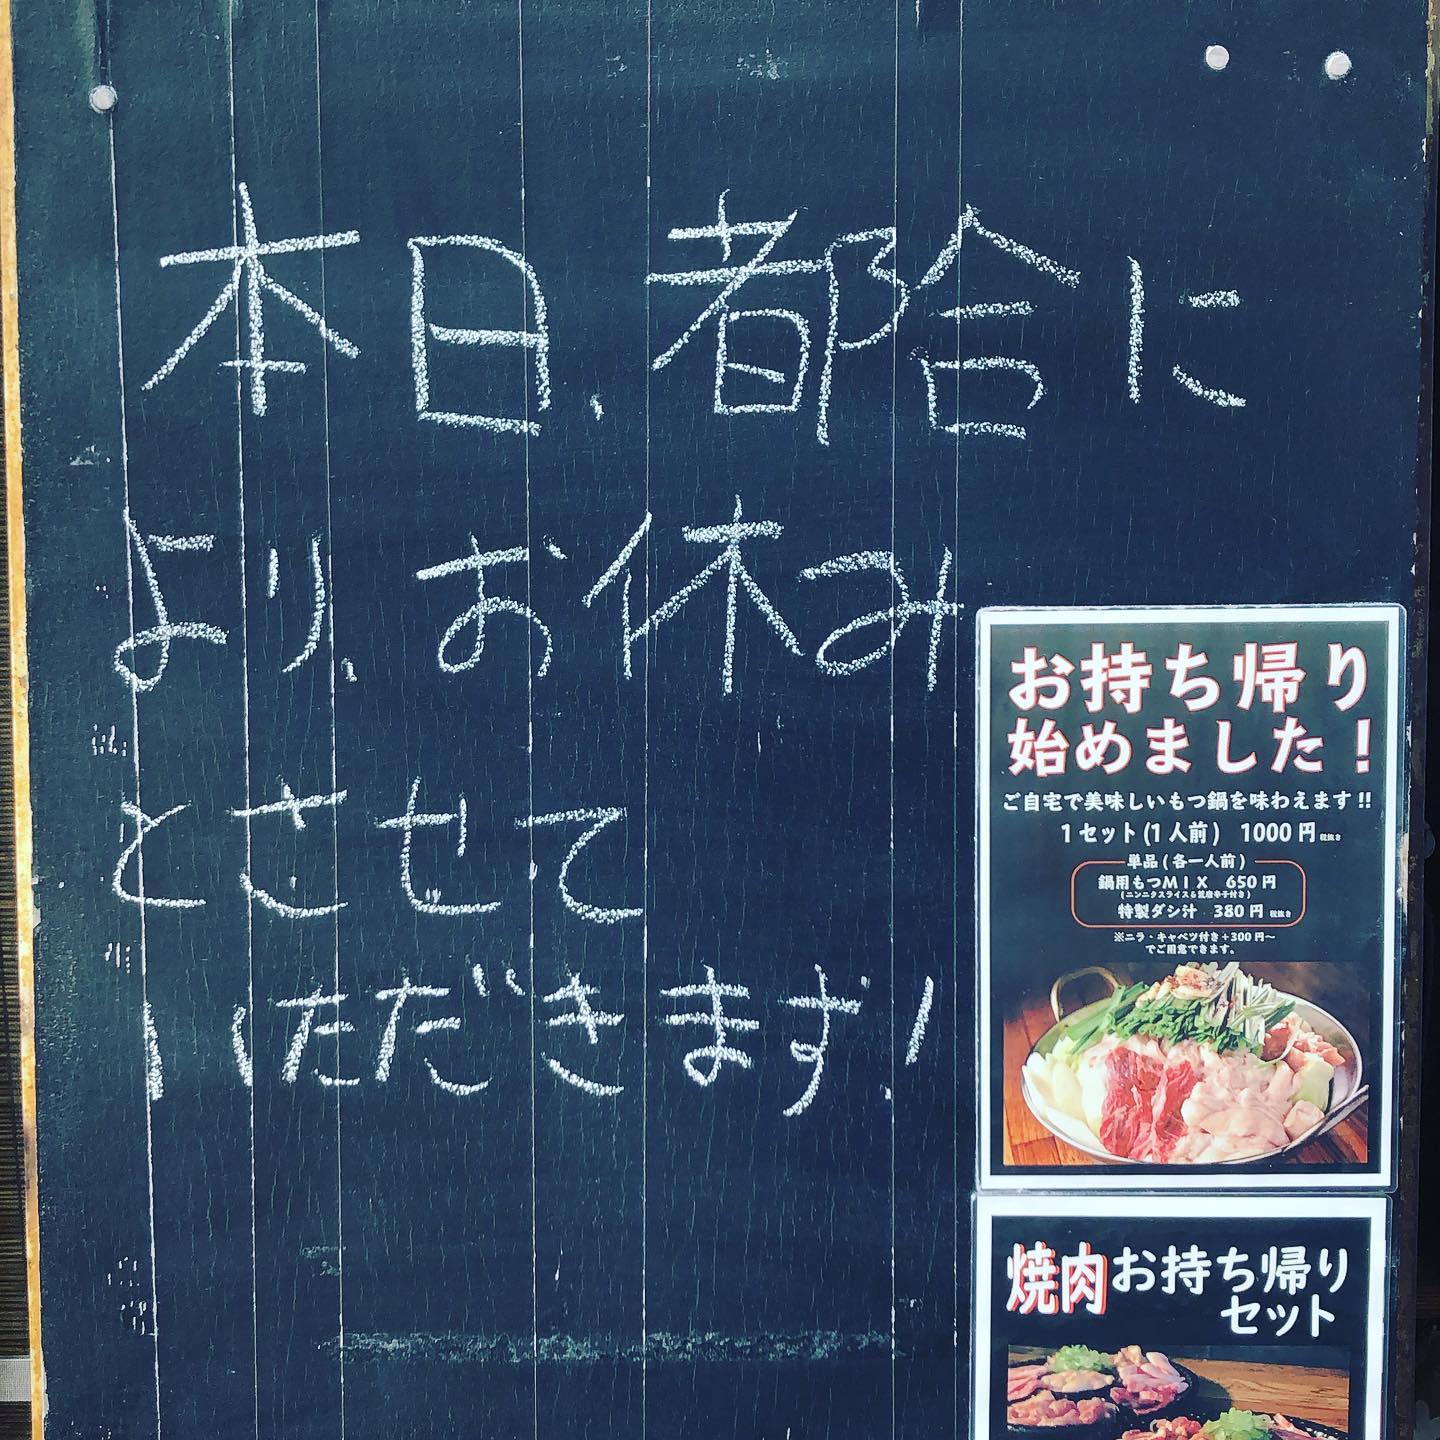 本日、都合に
より、お休み
とさせて
いただきます!
お持ち帰り
始めました!
ご自宅で美味しいもつ鍋を味わえます!!
1セット(1人前) 1000円 税抜き
単品(各一人前)
鍋用もつMIX 650円
特製ダシ汁 380円 税抜き
※ニラ・キャベツ付き+300円〜
でご用意できます。
焼肉お持ち帰り
セット